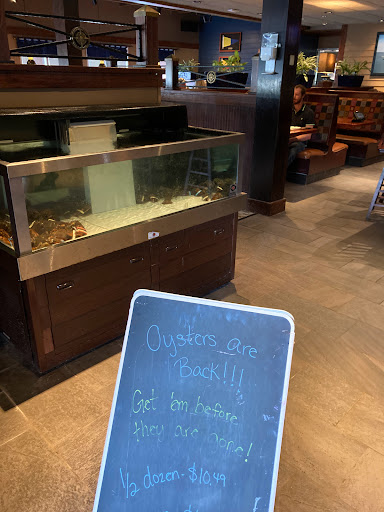 Oysters are
Back!!!
Get 'em before
they are gone!
1/2 dozen- $10.49